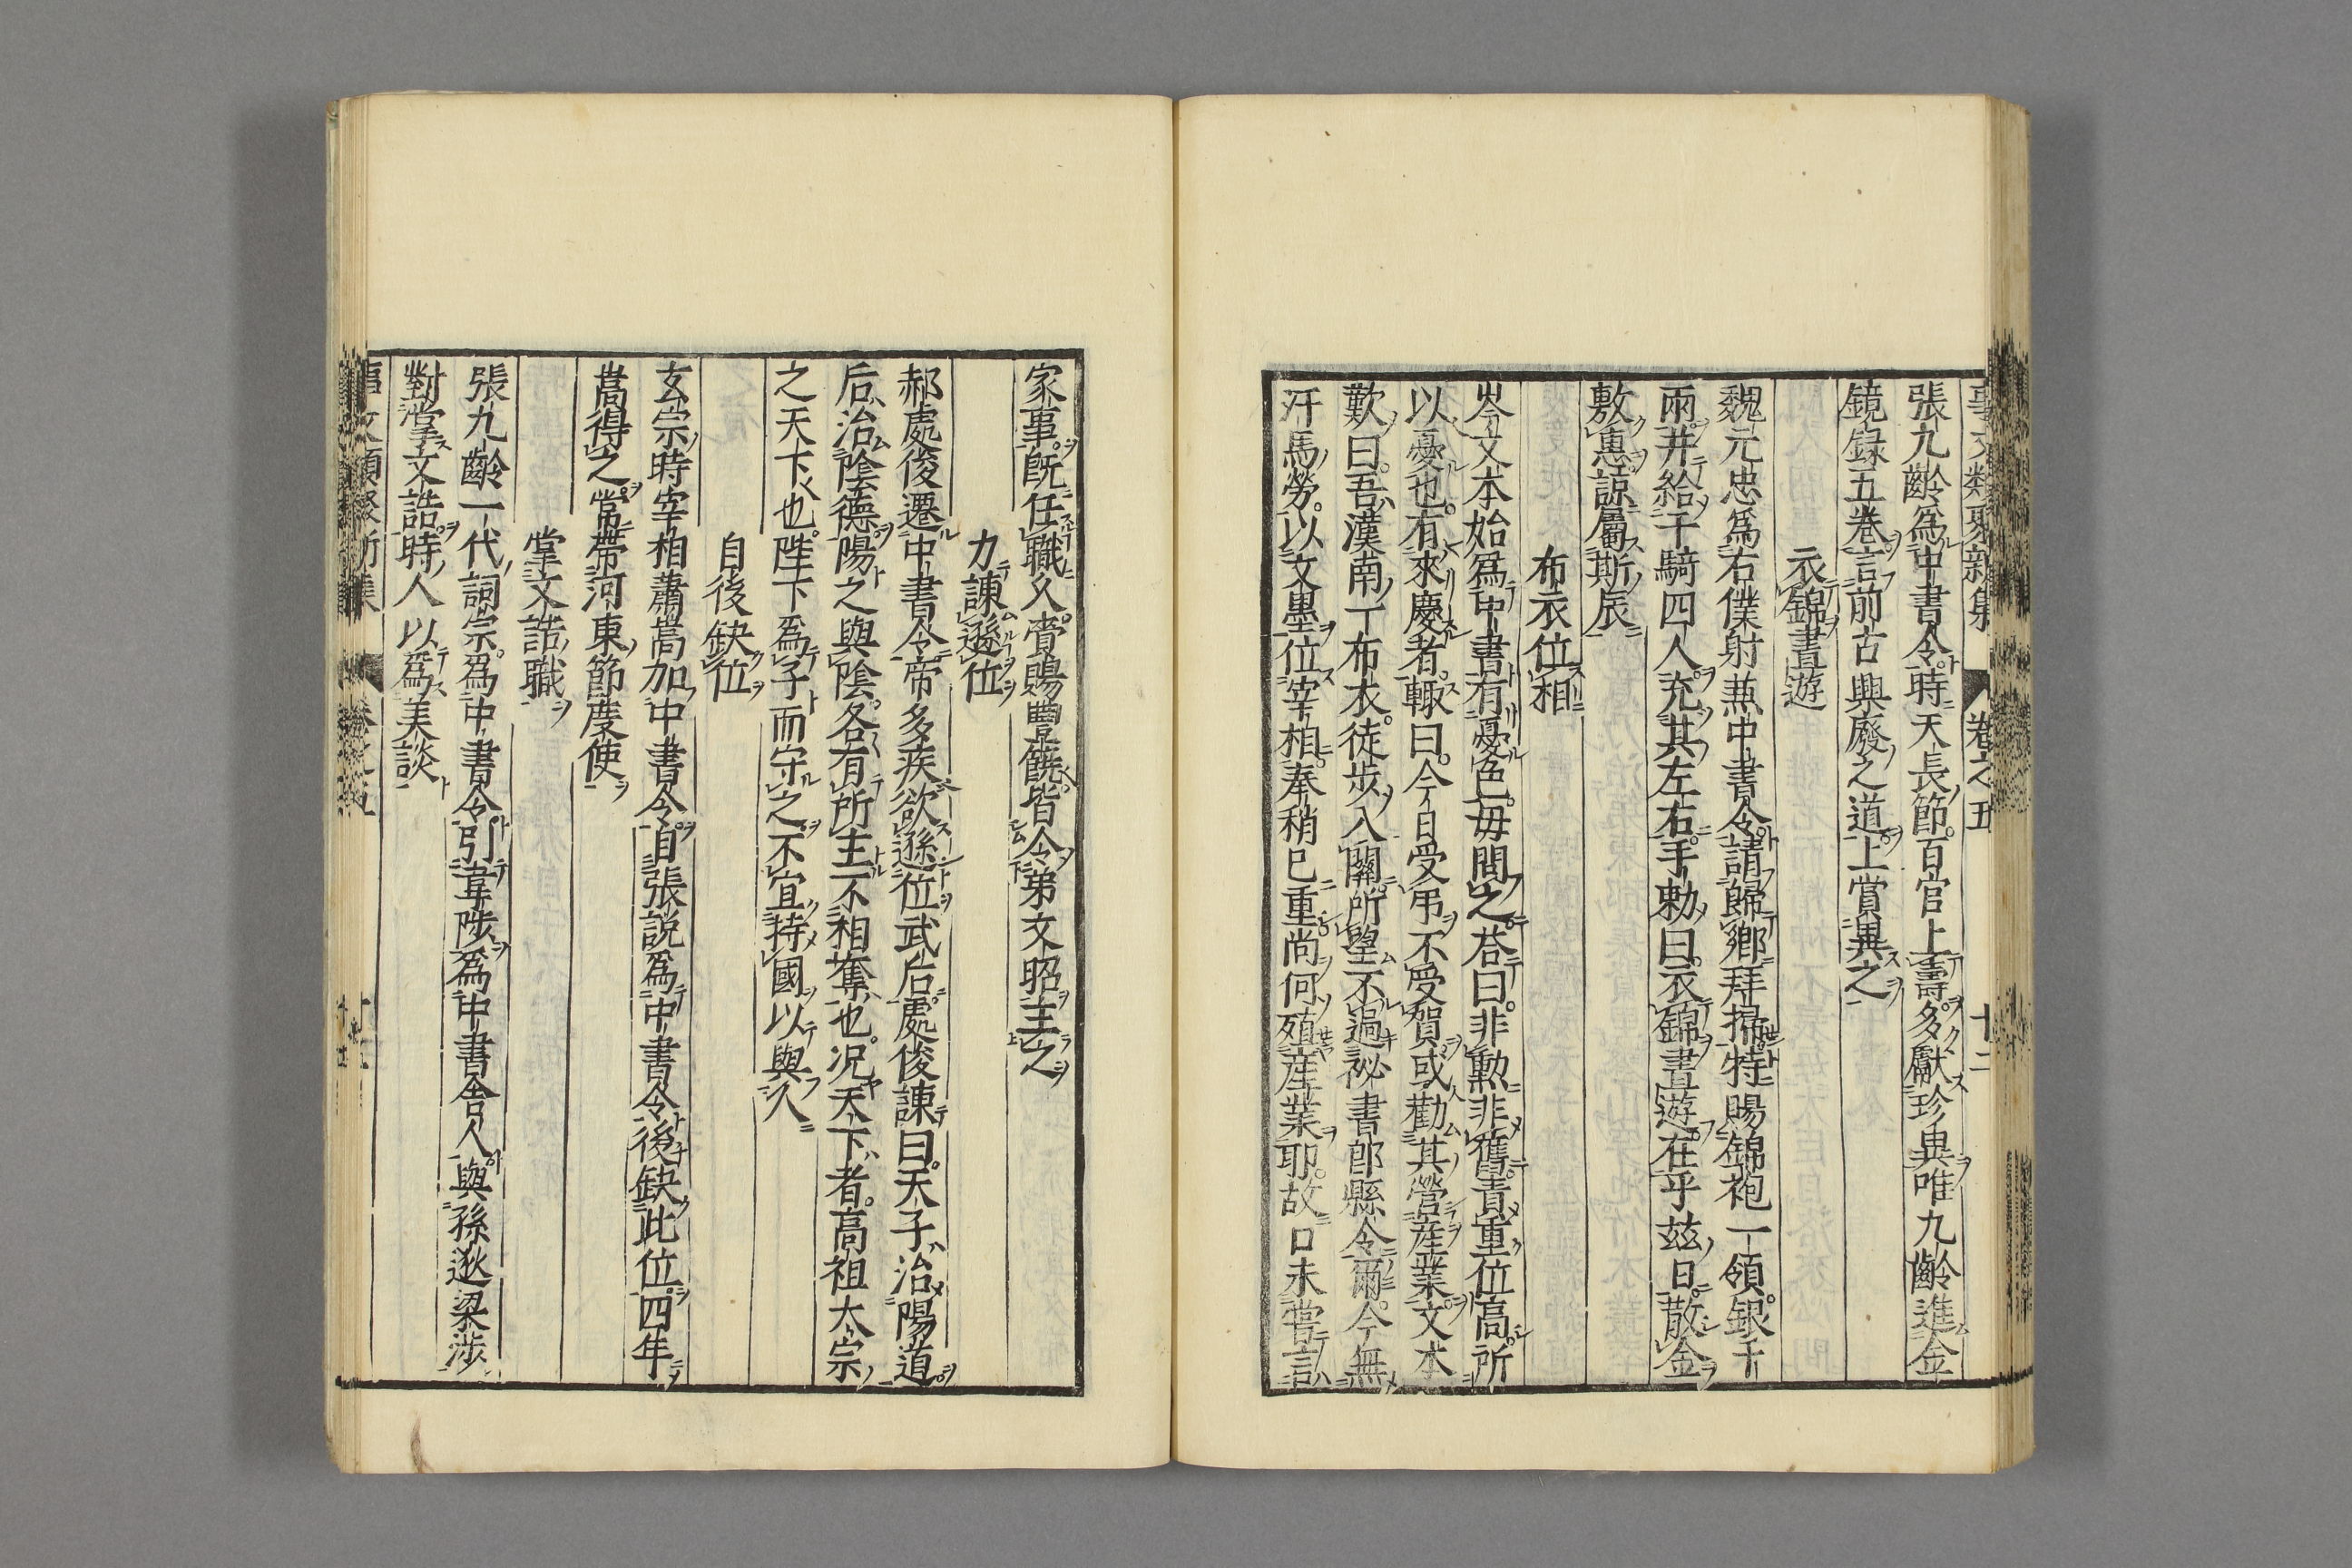 事文類聚新集 卷之五 十二
張九齡爲中書令時天長節百官上壽多獻珍異唯九齡進金
鏡録五巻言前古興廢之道上賞異之
衣錦晝遊
魏元忠爲右僕射兼中書令請歸鄉拜掃特賜錦袍一領銀千
兩并給千騎四人充其左右手勑曰衣錦晝遊在乎兹日散金
敷惠諒屬斯辰
布衣位相
岑文本始爲中書有憂色母問之荅曰非勲非舊責重位高所
以憂也有來慶者輙曰今日受弔不受賀或勸其營産業文本
歎曰吾漢南一布衣徒步入關所望不過祕書郎縣令爾今無
汗馬勞以文墨位宰相奉稍已重尚何殖産業耶故口未嘗言
家事旣任職久賫賜豐饒皆令弟文昭主之
力諫遜位
郝處俊遷中書令帝多疾欲遜位武后處俊諫曰天子治陽道
后治陰德陽之與陰各有所主不相奪也况天下者高祖太宗
之天下也陛下爲子而守之不宜持國以與人
自後缺位
玄宗時宰相蕭嵩加中書令自張説爲中書令後缺此位四年
嵩得之常帶河東節度使
掌文誥職
張九齡一代詞宗爲中書令引韋陟爲中書舍人與孫逖梁渉
對掌文誥時人以爲美談